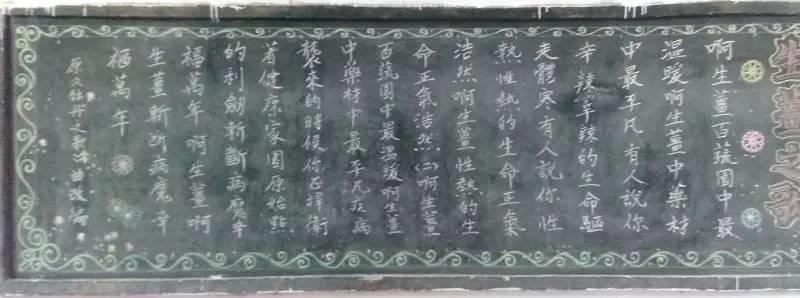 生薑之歌
啊生薑百蔬園中最
温暖啊生薑中藥材
中最平凡有人說你
辛辣辛辣的生命驅
走體寒有人說你性
熱性熱的生命正氣
浩然啊生薑性熱的生
命正氣浩然(二)啊生薑
百蔬園中最温暖啊生薑
中藥材中最平凡疾病
襲來的時候你正捍衛
着健康家園原始點
的利劍斬斷病魔幸
福萬年啊生薑啊
生薑斬斷病魔幸
福萬年